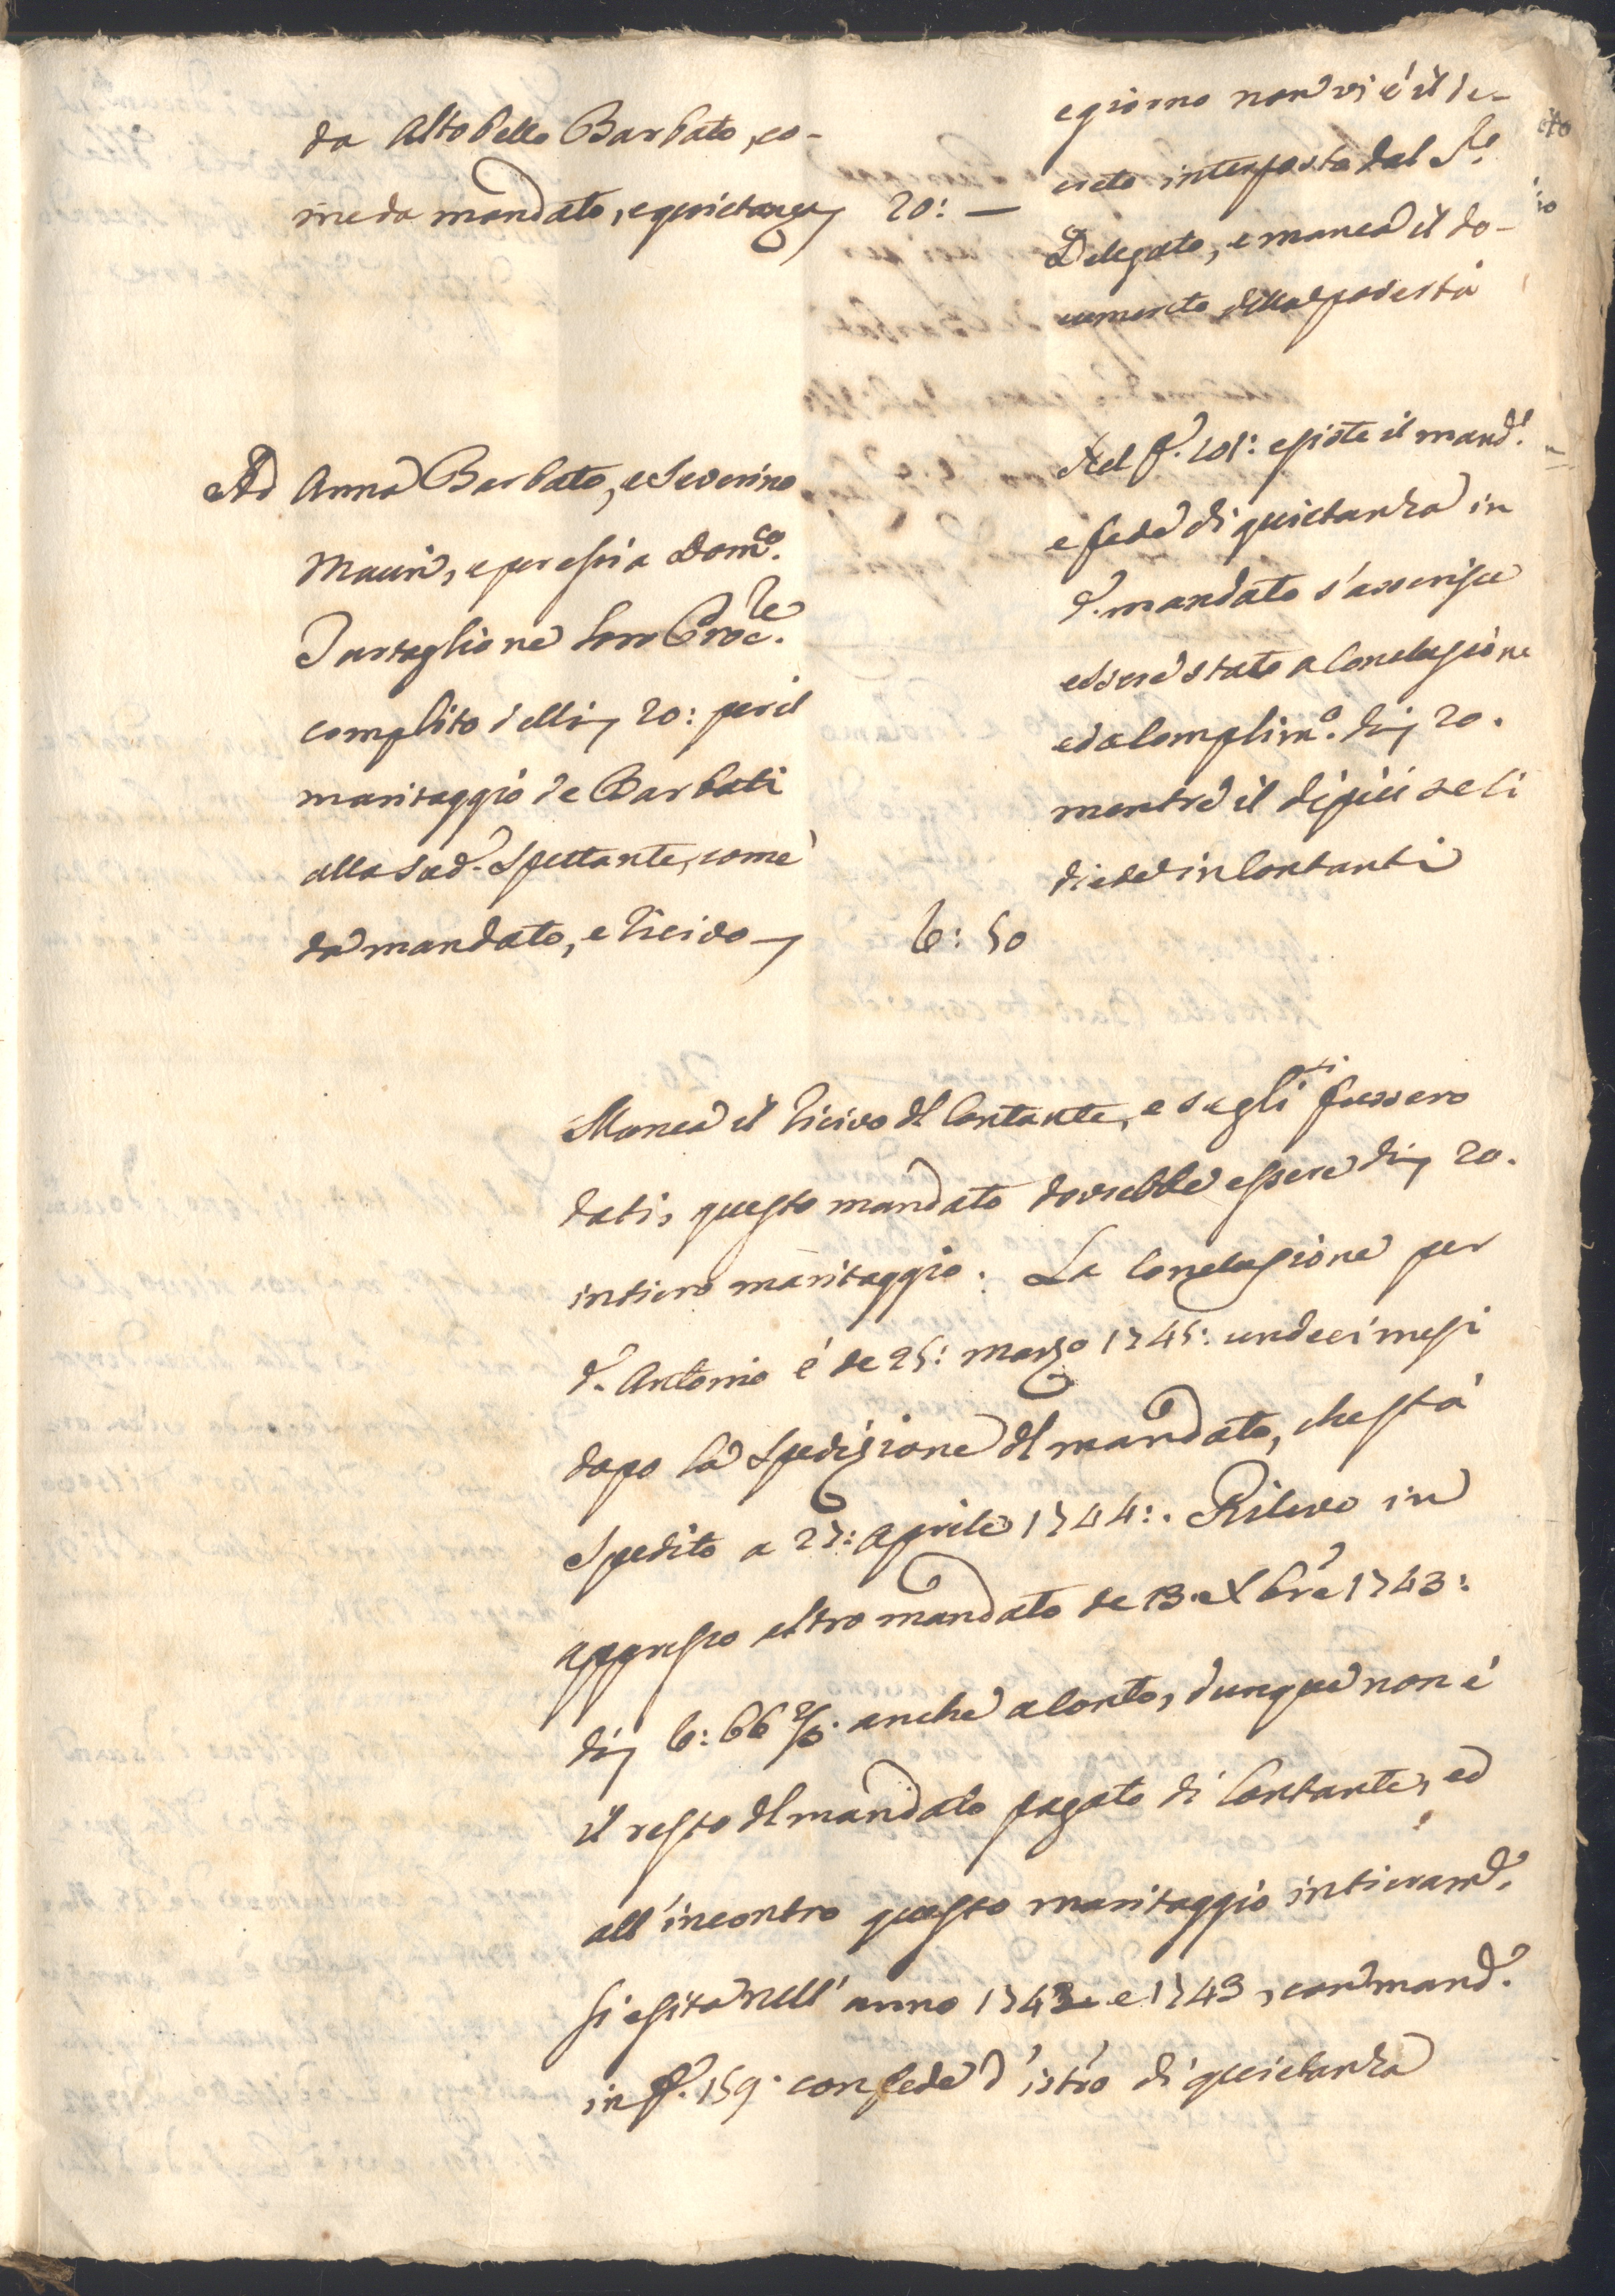 da Altobello Barbato, co-
me da mandato, e quietanza 20: —
e giorno non vi è il de-
creto interposto dal S.re
Delegato, e manca il do-
cumento della povertà
Ad Anna Barbato, e Severino
Mauri, e per essi a Dom.co
Tartaglione loro Proc.re
complito delli 20: per il
maritaggio de Barbati
alla sud.a spettante, come
da mandato, e ricivo
6: 50
Nel f. 101: esiste il mand.o
e fede di quietanza in
d.o mandato s'asserisce
essere stato a Conclusione
ed a Complim.o di 20.
mentre il dipiù se li
diede in Contanti
Manca il ricivo del Contante, e se gli fussero
dati, questo mandato dovrebbe essere di 20.
intiero maritaggio. La Conclusione per
d. Antonio è de 25: Marzo 1745: undeci mesi
dopo la spedizione del mandato, che stà
spedito a 27: Aprile 1744:. Rilevo in
appresso altro mandato de 13 Xbre 1743:
di 6: 66 2/3. anche a Conto, dunque non è
il resto del mandato pagato di Contante, ed
all'incontro questo maritaggio intieram.e
si esità nell'anno 1742 e 1743, con mand.o
in f. 159. con fede d'istro di quietanza